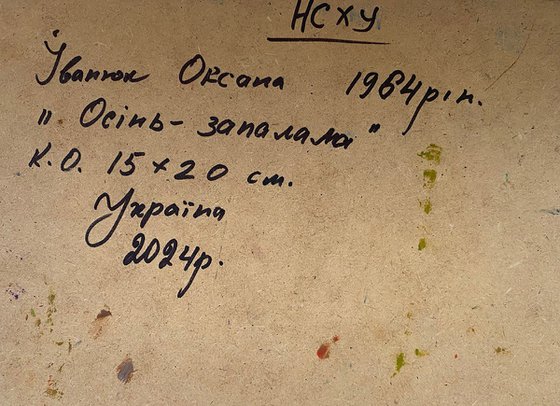 НСХУ
Іванюк Оксана 1964р.н.
"Осінь - запалала"
К.О. 15×20 см.
Україна
2024р.